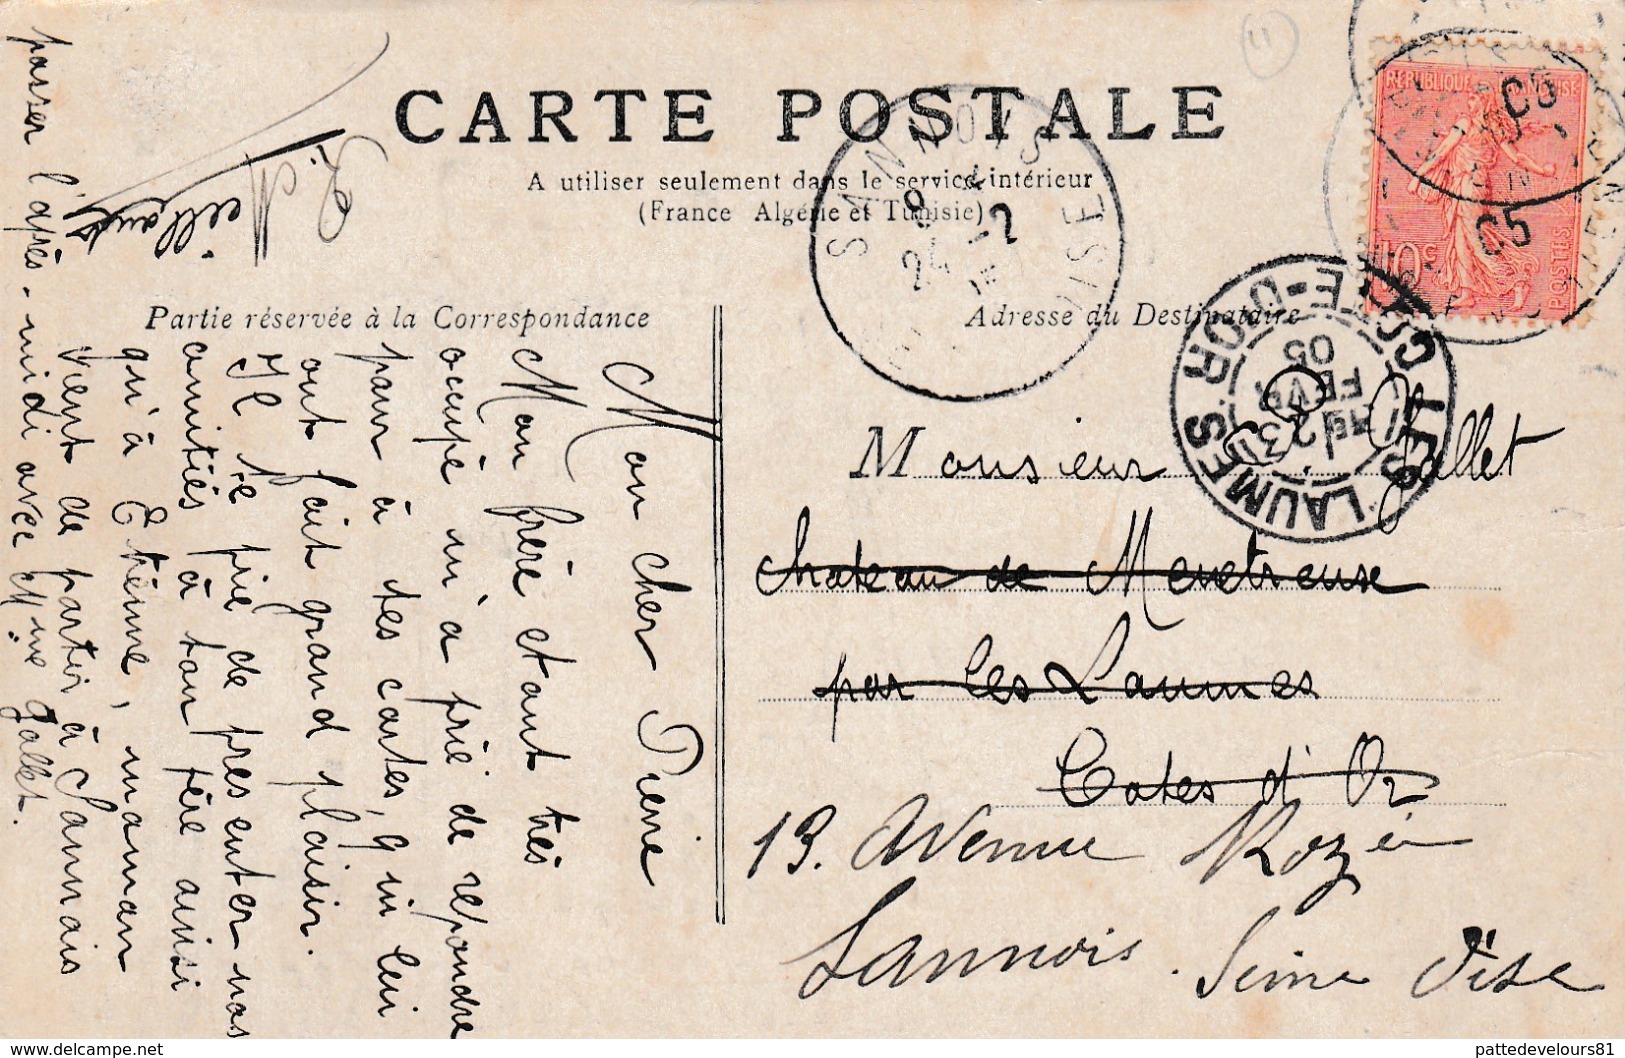 CARTE POSTALE
A utiliser seulement dans le service intérieur
(France Algérie et Tunisie)
Partie réservée à la Correspondance
Adresse du Destinataire
RÉPUBLIQUE FRANÇAISE
10c
POSTES
SANNOIS
OISE
LES LAUMES COTE-D'OR
23
FEVR
05
11
Monsieur Gallet
Chateau de Menetreuse
par Les Laumes
Cotes d'Or
13. Avenue Rozée
Sannois. Seine Oise
Mon cher Pierre
Mon frère étant très
occupé m'a prié de repondre
pour à tes cartes, qui lui
ont fait grand plaisir.
Il te prie de presenter nos
amitiés à ton père ainsi
qu'à Etienne, maman
vient de partir à Sannois
passer l'après-midi avec Mme Gallet.